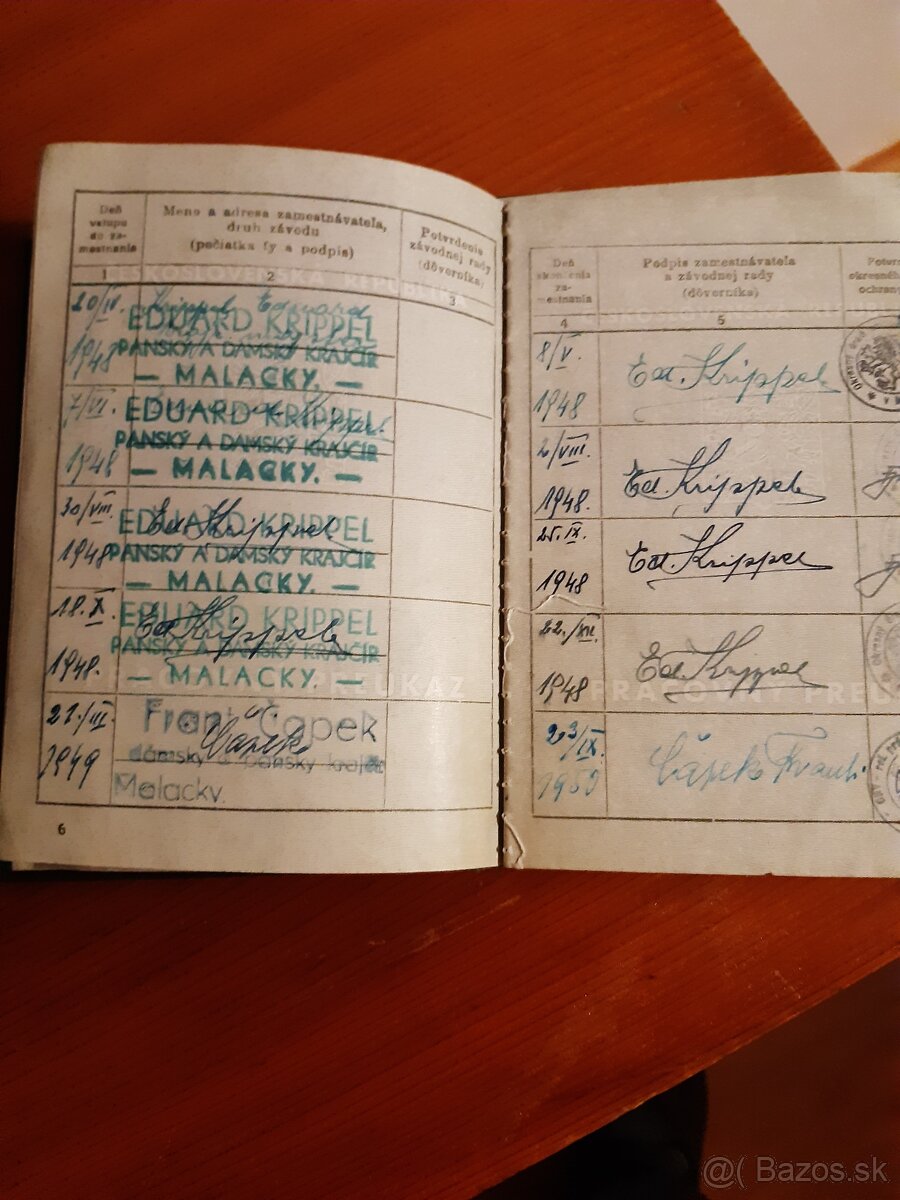 Deň
vstupu
do za-
mestnania
Meno a adresa zamestnávateľa,
druh závodu
(pečiatka fy a podpis)
Potvrdenie
závodnej rady
(dôverníka)
1
2
3
ČESKOSLOVENSKÁ REPUBLIKA
20/IV.
1948
Krippel Eduard
EDUARD KRIPPEL
PÁNSKÝ A DAMSKÝ KRAJČÍR
— MALACKY. —
7/VI.
1948
EDUARD KRIPPEL
PÁNSKÝ A DAMSKÝ KRAJČÍR
— MALACKY. —
30/VIII.
1948
Ed. Krippel
EDUARD KRIPPEL
PÁNSKÝ A DAMSKÝ KRAJČÍR
— MALACKY. —
18. X.
1948.
Ed. Krippel
EDUARD KRIPPEL
PÁNSKÝ A DAMSKÝ KRAJČÍR
— MALACKY. —
PREUKAZ
21./III.
1949
Frant. Čapek
Čapek
dámsky a pánsky krajčír
Malacky.
6
Deň
skončenia
za-
mestnania
Podpis zamestnávateľa
a závodnej rady
(dôverníka)
4
5
8/V.
1948
Ed. Krippel
2/VIII.
1948.
Ed. Krippel
25. IX.
1948
Ed. Krippel
22./XII.
1948
Ed. Krippel
PRACOVNÝ
23/IX.
Čapek Frant.
@( Bazos.sk